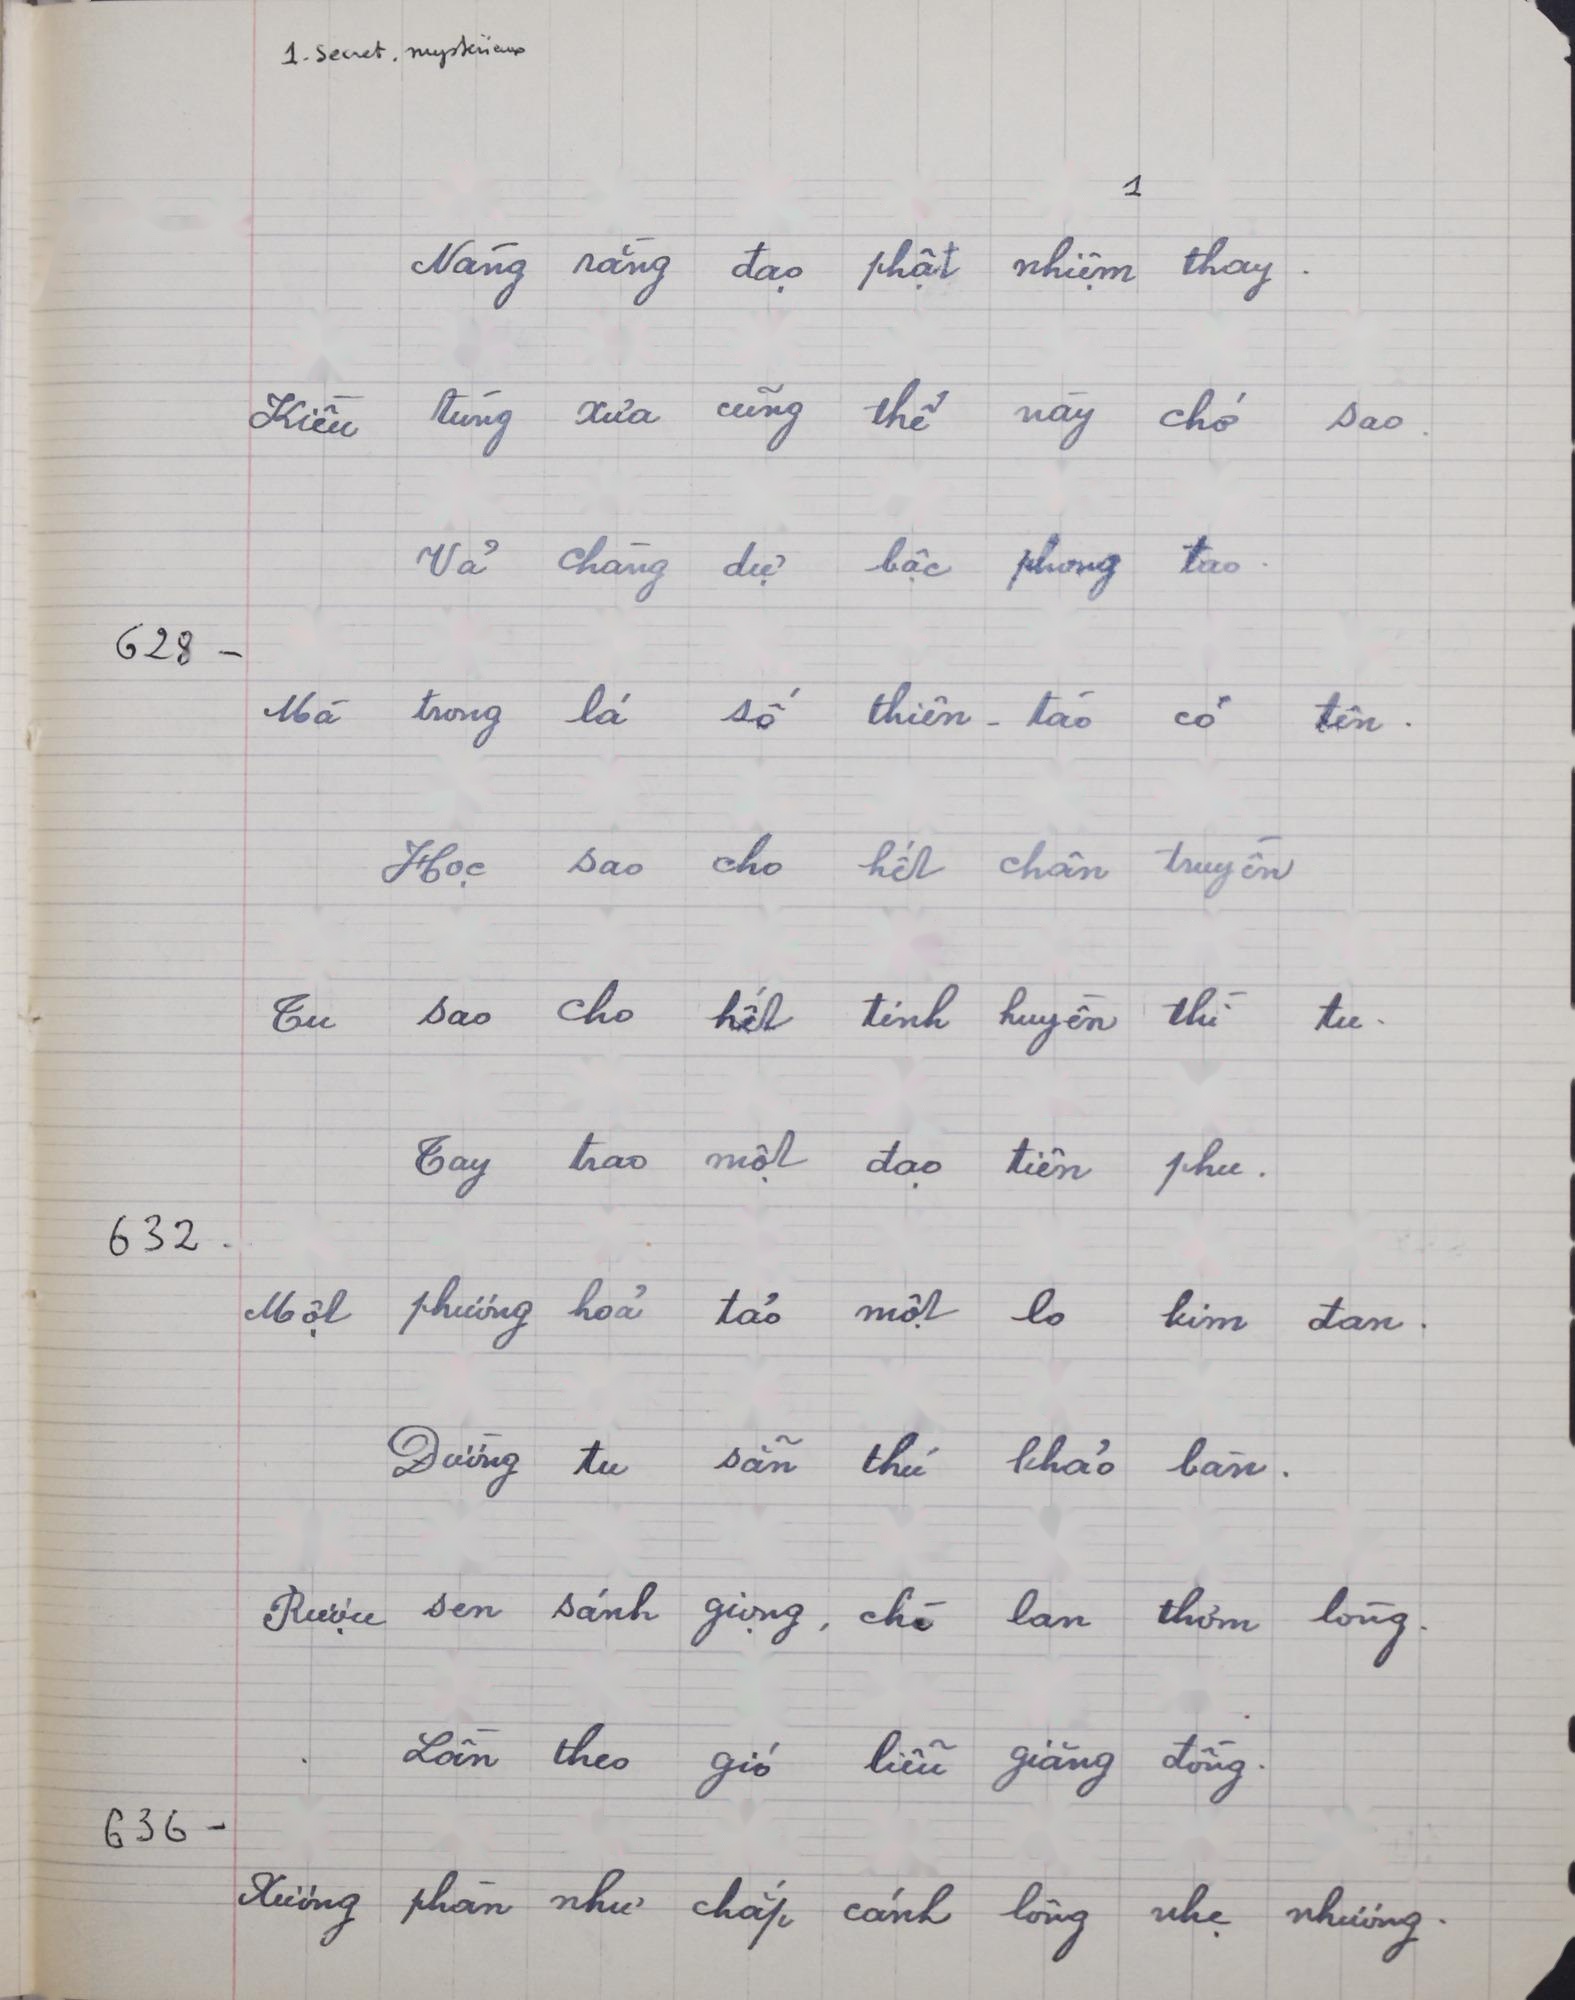 1. secret. mystérieux
1
Nàng rằng đạo phật nhiệm thay.
Kiều tùng xưa cũng thế này chớ sao.
Vả chàng dự bậc phong tao.
628 -
Mà trong lá số thiên-tào có tên.
Học sao cho hết chân truyền
Tu sao cho hết tính huyền thì tu.
Tay trao một đạo tiên phu.
632.
Một phương hoả táo một lo kim đan.
Đường tu sẵn thú khảo bàn.
Rượu sen sánh giọng, chè lan thơm lòng.
Lần theo gió liễu giăng đồng.
636 -
Xương phàn như chắp cánh lông nhẹ nhường.